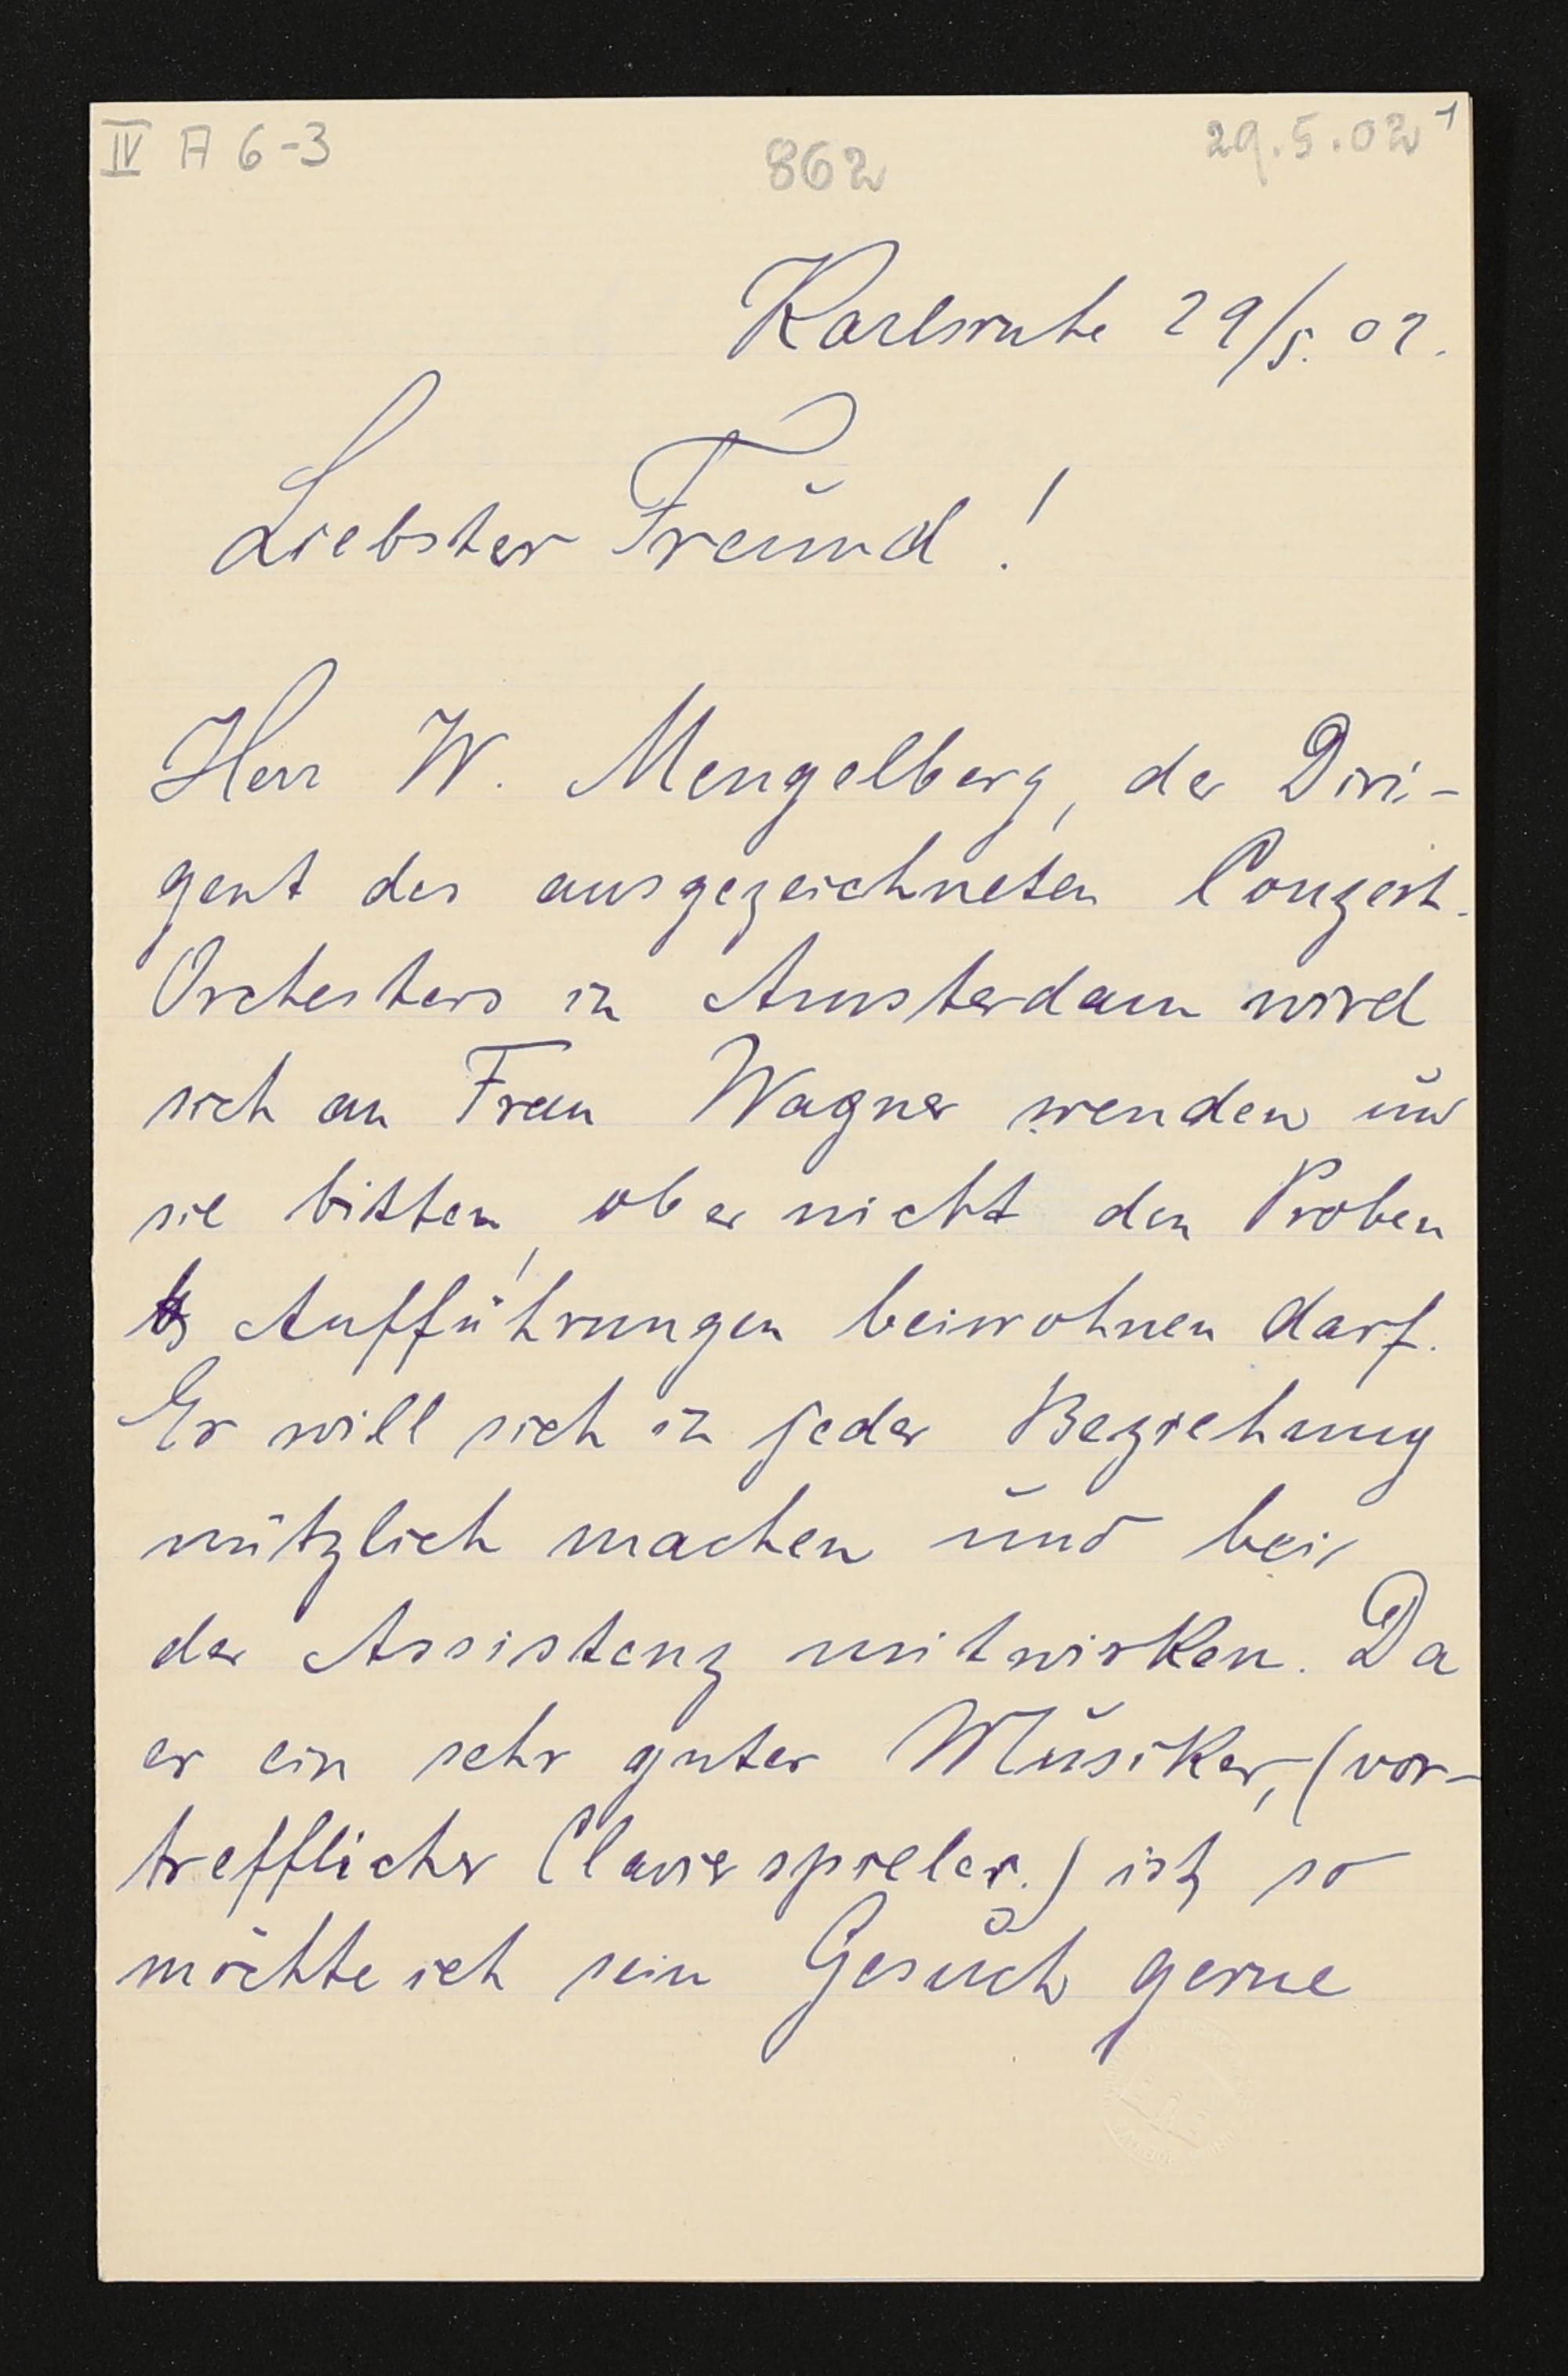 IV A 6-3
862
29.5.02 1
Karlsruhe 29/5. 02.
Liebster Freund!
Herr W. Mengelberg, der Diri-
gent des ausgezeichneten Conzert-
Orchesters in Amsterdam wird
sich an Frau Wagner wenden un
sie bitten, ob er nicht den Proben
& Aufführungen beiwohnen darf.
Er will sich in jeder Beziehung
nützlich machen und bei
der Assistenz mitwirken. Da
er ein sehr guter Musiker, (vor-
trefflicher Clavierspieler.) ist, so
möchte ich sein Gesuch gerne